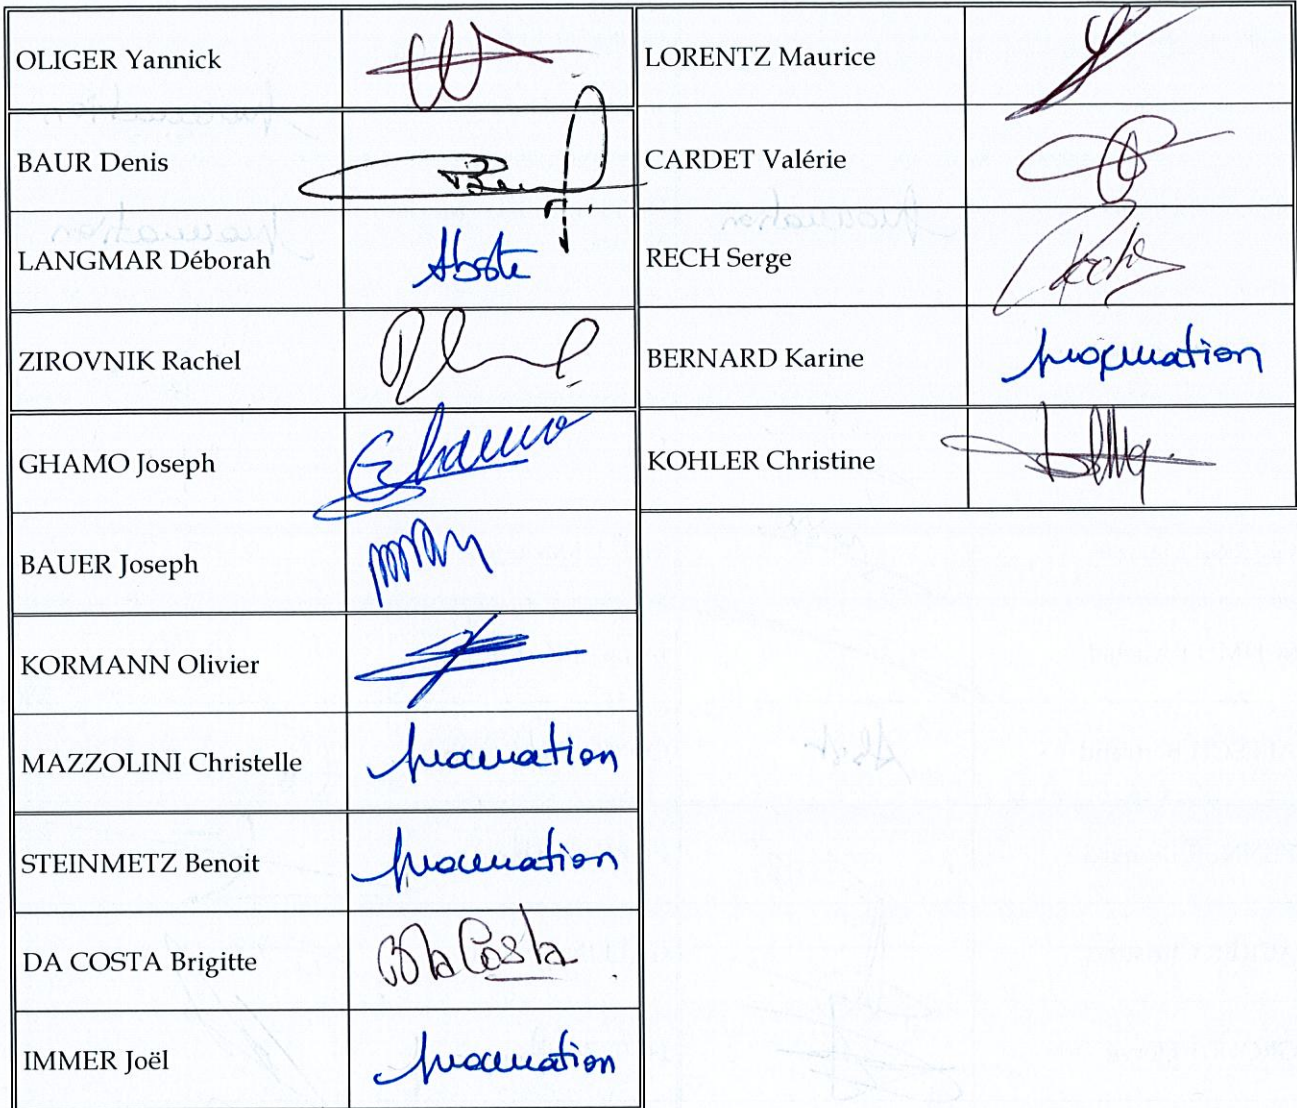 OLIGER Yannick
BAUR Denis
LANGMAR Déborah
ZIROVNIK Rachel
GHAMO Joseph
Ghamo
BAUER Joseph
KORMANN Olivier
MAZZOLINI Christelle
procuration
STEINMETZ Benoit
procuration
DA COSTA Brigitte
Da Costa
IMMER Joël
procuration
LORENTZ Maurice
CARDET Valérie
RECH Serge
BERNARD Karine
procuration
KOHLER Christine